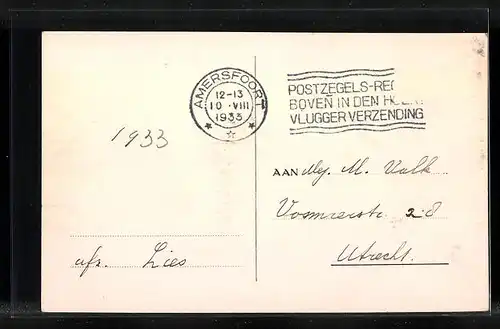 AMERSFOORT
12-13
10 · VIII
1933
POSTZEGELS-REC
BOVEN IN DEN HOEK
VLUGGER VERZENDING
1933
AAN Mej. M. Valk
Vosmaerstr. 28
Utrecht.
afz. Lies